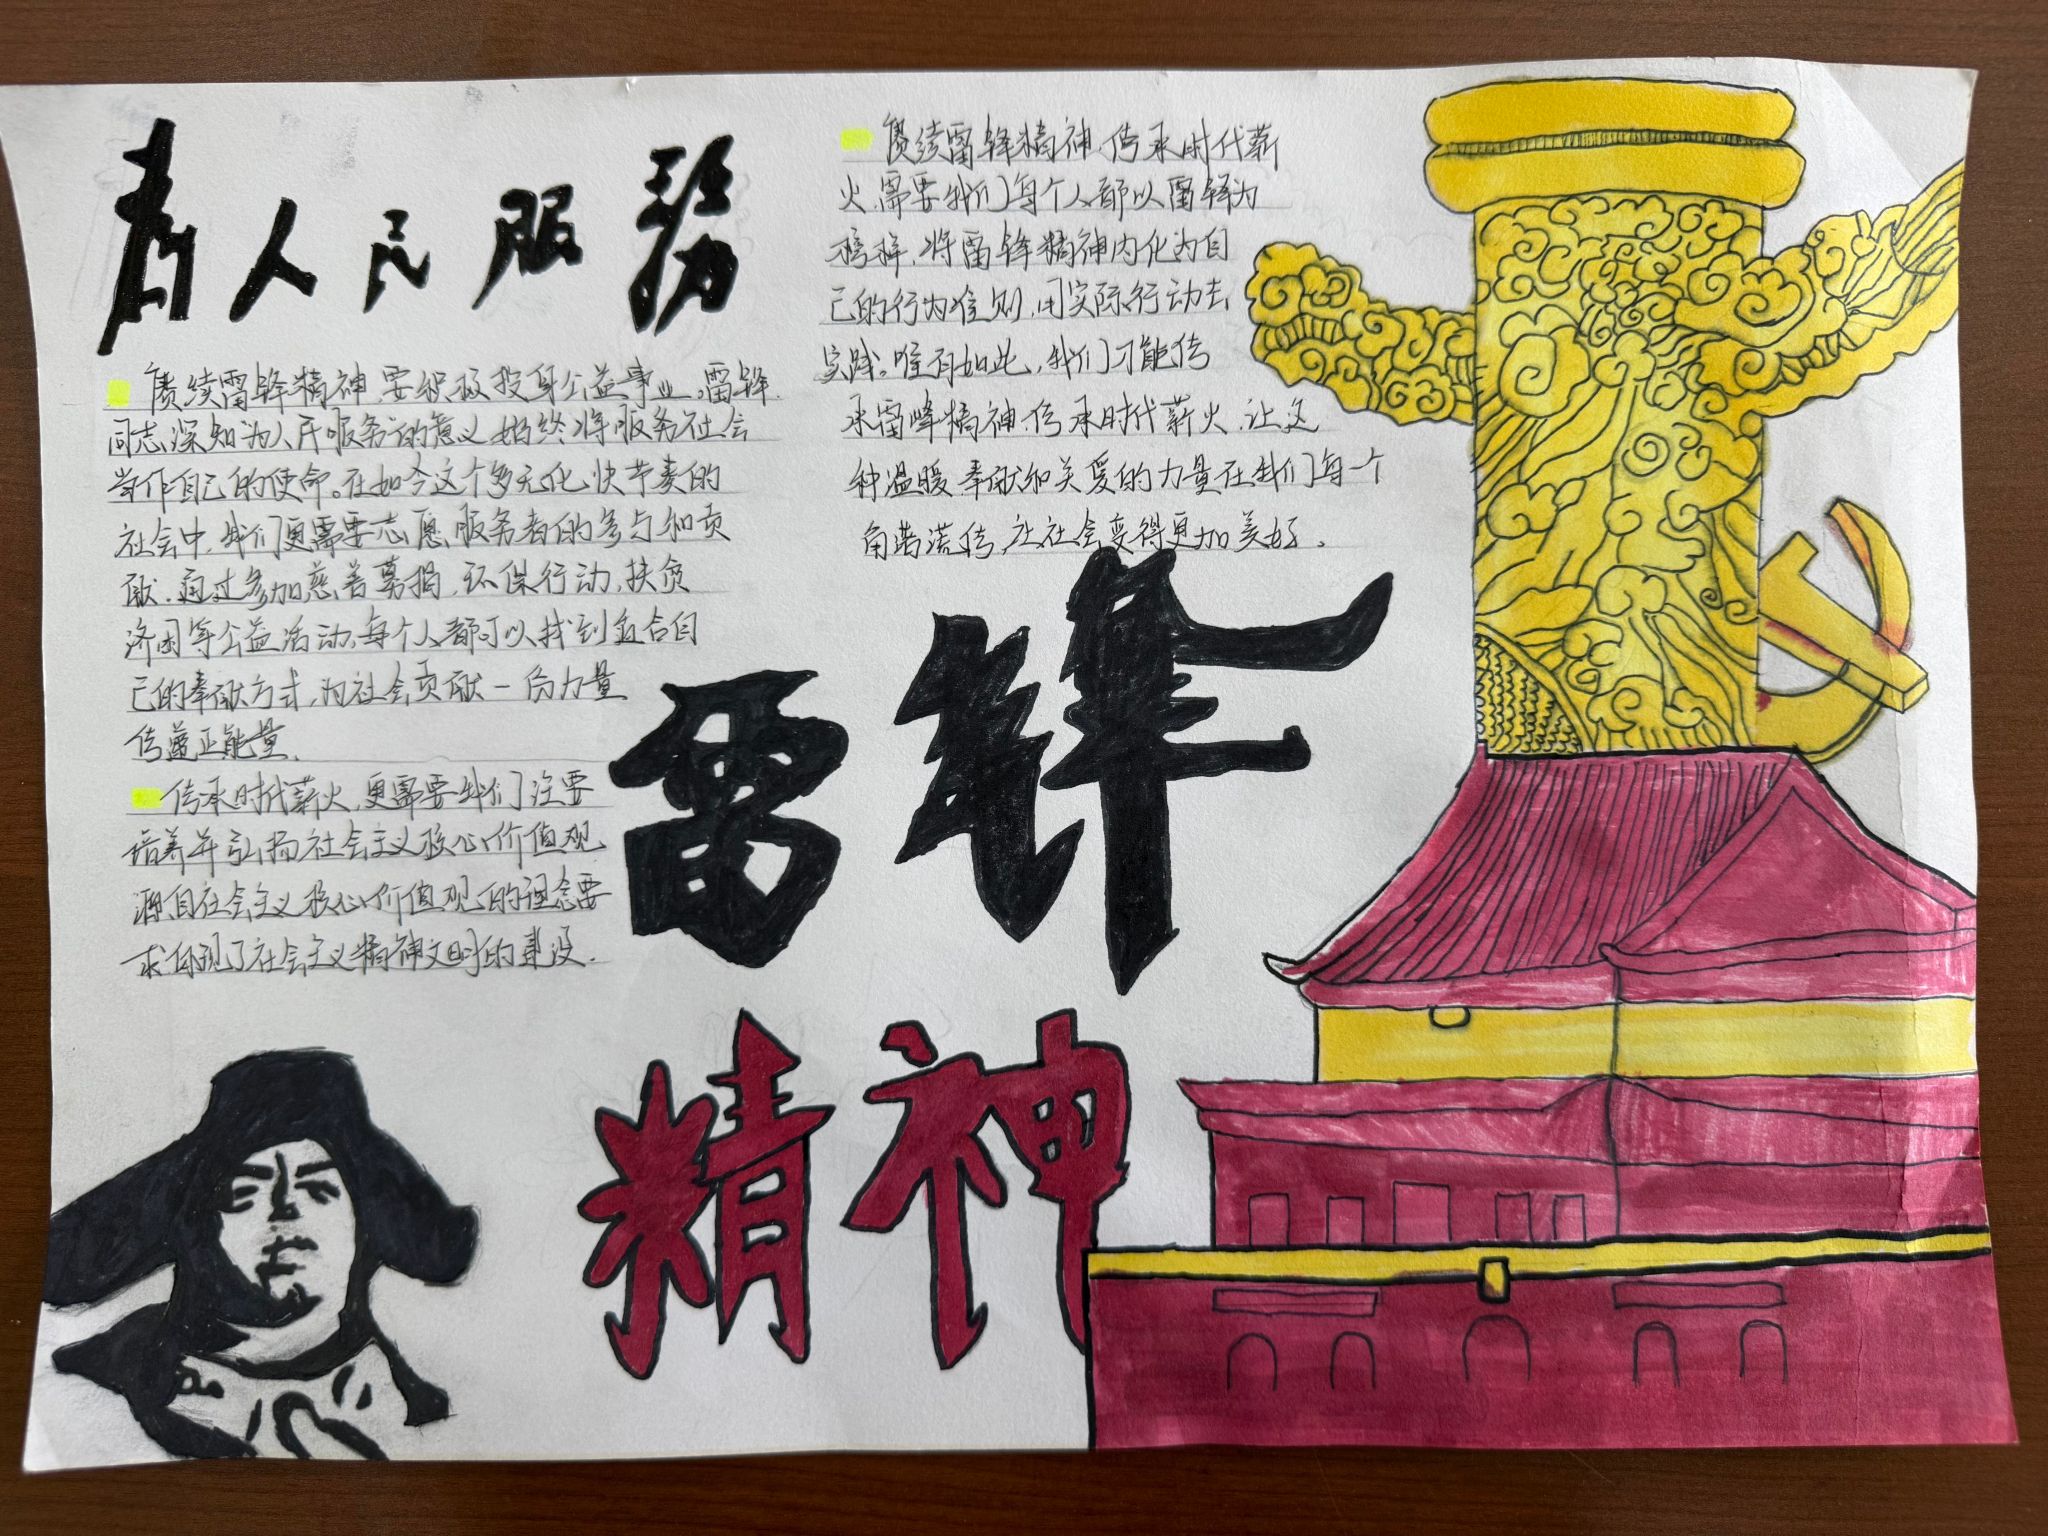 为人民服务
赓续雷锋精神,要积极投身公益事业。雷锋
同志深知为人民服务的意义,始终将服务社会
当作自己的使命。在如今这个多元化、快节奏的
社会中,我们更需要志愿服务者的参与和贡
献。通过参加慈善募捐,环保行动,扶贫
济困等公益活动,每个人都可以找到适合自
己的奉献方式,为社会贡献一份力量
传递正能量.
传承时代薪火,更需要我们注要
培养并弘扬社会主义核心价值观
源自社会主义核心价值观的理念要
求体现了社会主义精神文明的建设.
赓续雷锋精神、传承时代薪
火,需要我们每个人都以雷锋为
榜样,将雷锋精神内化为自
己的行为准则,用实际行动去
实践。唯有如此,我们才能传
承雷峰精神,传承时代薪火,让这
种温暖、奉献和关爱的力量在我们每一个
角落流传,让社会变得更加美好.
雷锋
精神